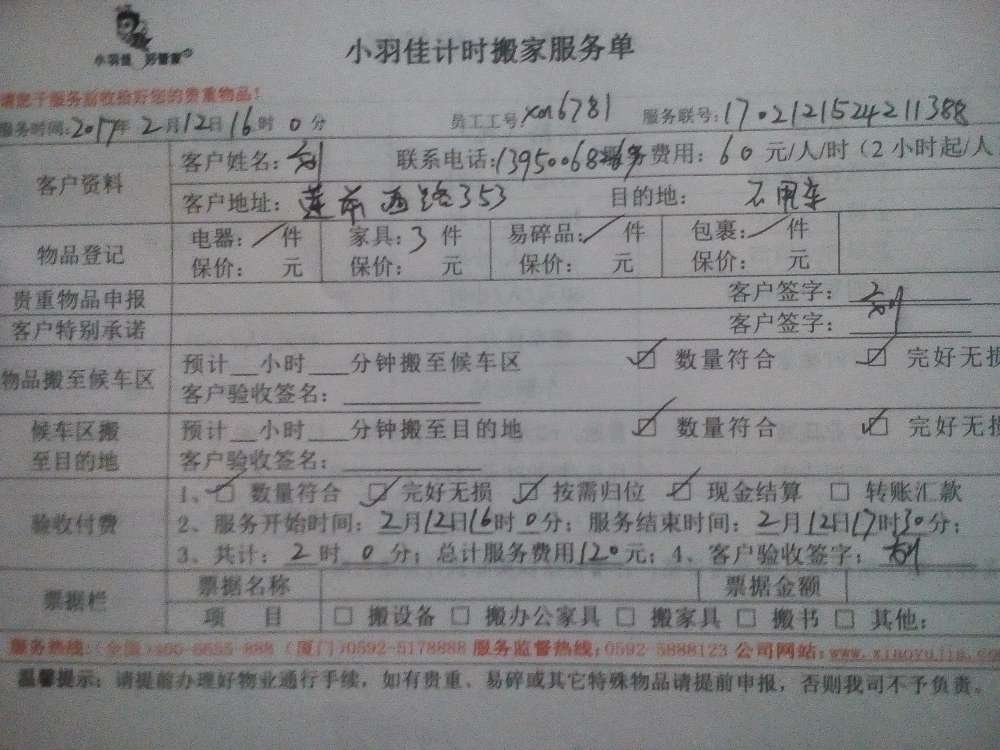 小羽佳 好管家
小羽佳计时搬家服务单
请您于服务前收拾好您的贵重物品！
服务时间：2017年2月12日16时0分 员工工号xm6781 服务联号：1702121524211388
客户资料
客户姓名：刘 联系电话：费用：60元/人/时（2小时起/人
客户地址：莲前西路353 目的地：不用车
物品登记
电器：/件 家具：3件 易碎品：/件 包裹：/件
保价： 元 保价： 元 保价： 元 保价： 元
贵重物品申报 客户签字：刘
客户特别承诺 客户签字：
物品搬至候车区
预计__小时___分钟搬至候车区 ☑ 数量符合 ☑ 完好无损
客户验收签名：
候车区搬至目的地
预计__小时___分钟搬至目的地 ☑ 数量符合 ☑ 完好无损
客户验收签名：
验收付费
1、☑ 数量符合 ☑ 完好无损 ☑ 按需归位 ☑ 现金结算 □ 转账汇款
2、服务开始时间：2月12日16时0分；服务结束时间：2月12日17时30分；
3、共计：2时0分；总计服务费用120元；4、客户验收签字：刘
票据栏
票据名称 票据金额
项 目 □ 搬设备 □ 搬办公家具 □ 搬家具 □ 搬书 □ 其他：
服务热线：(全国)400-6655-888 (厦门)0592-5178888 服务监督热线：0592-5888123 公司网站：www.xiaoyujia.com
温馨提示：请提前办理好物业通行手续，如有贵重、易碎或其它特殊物品请提前申报，否则我司不予负责。